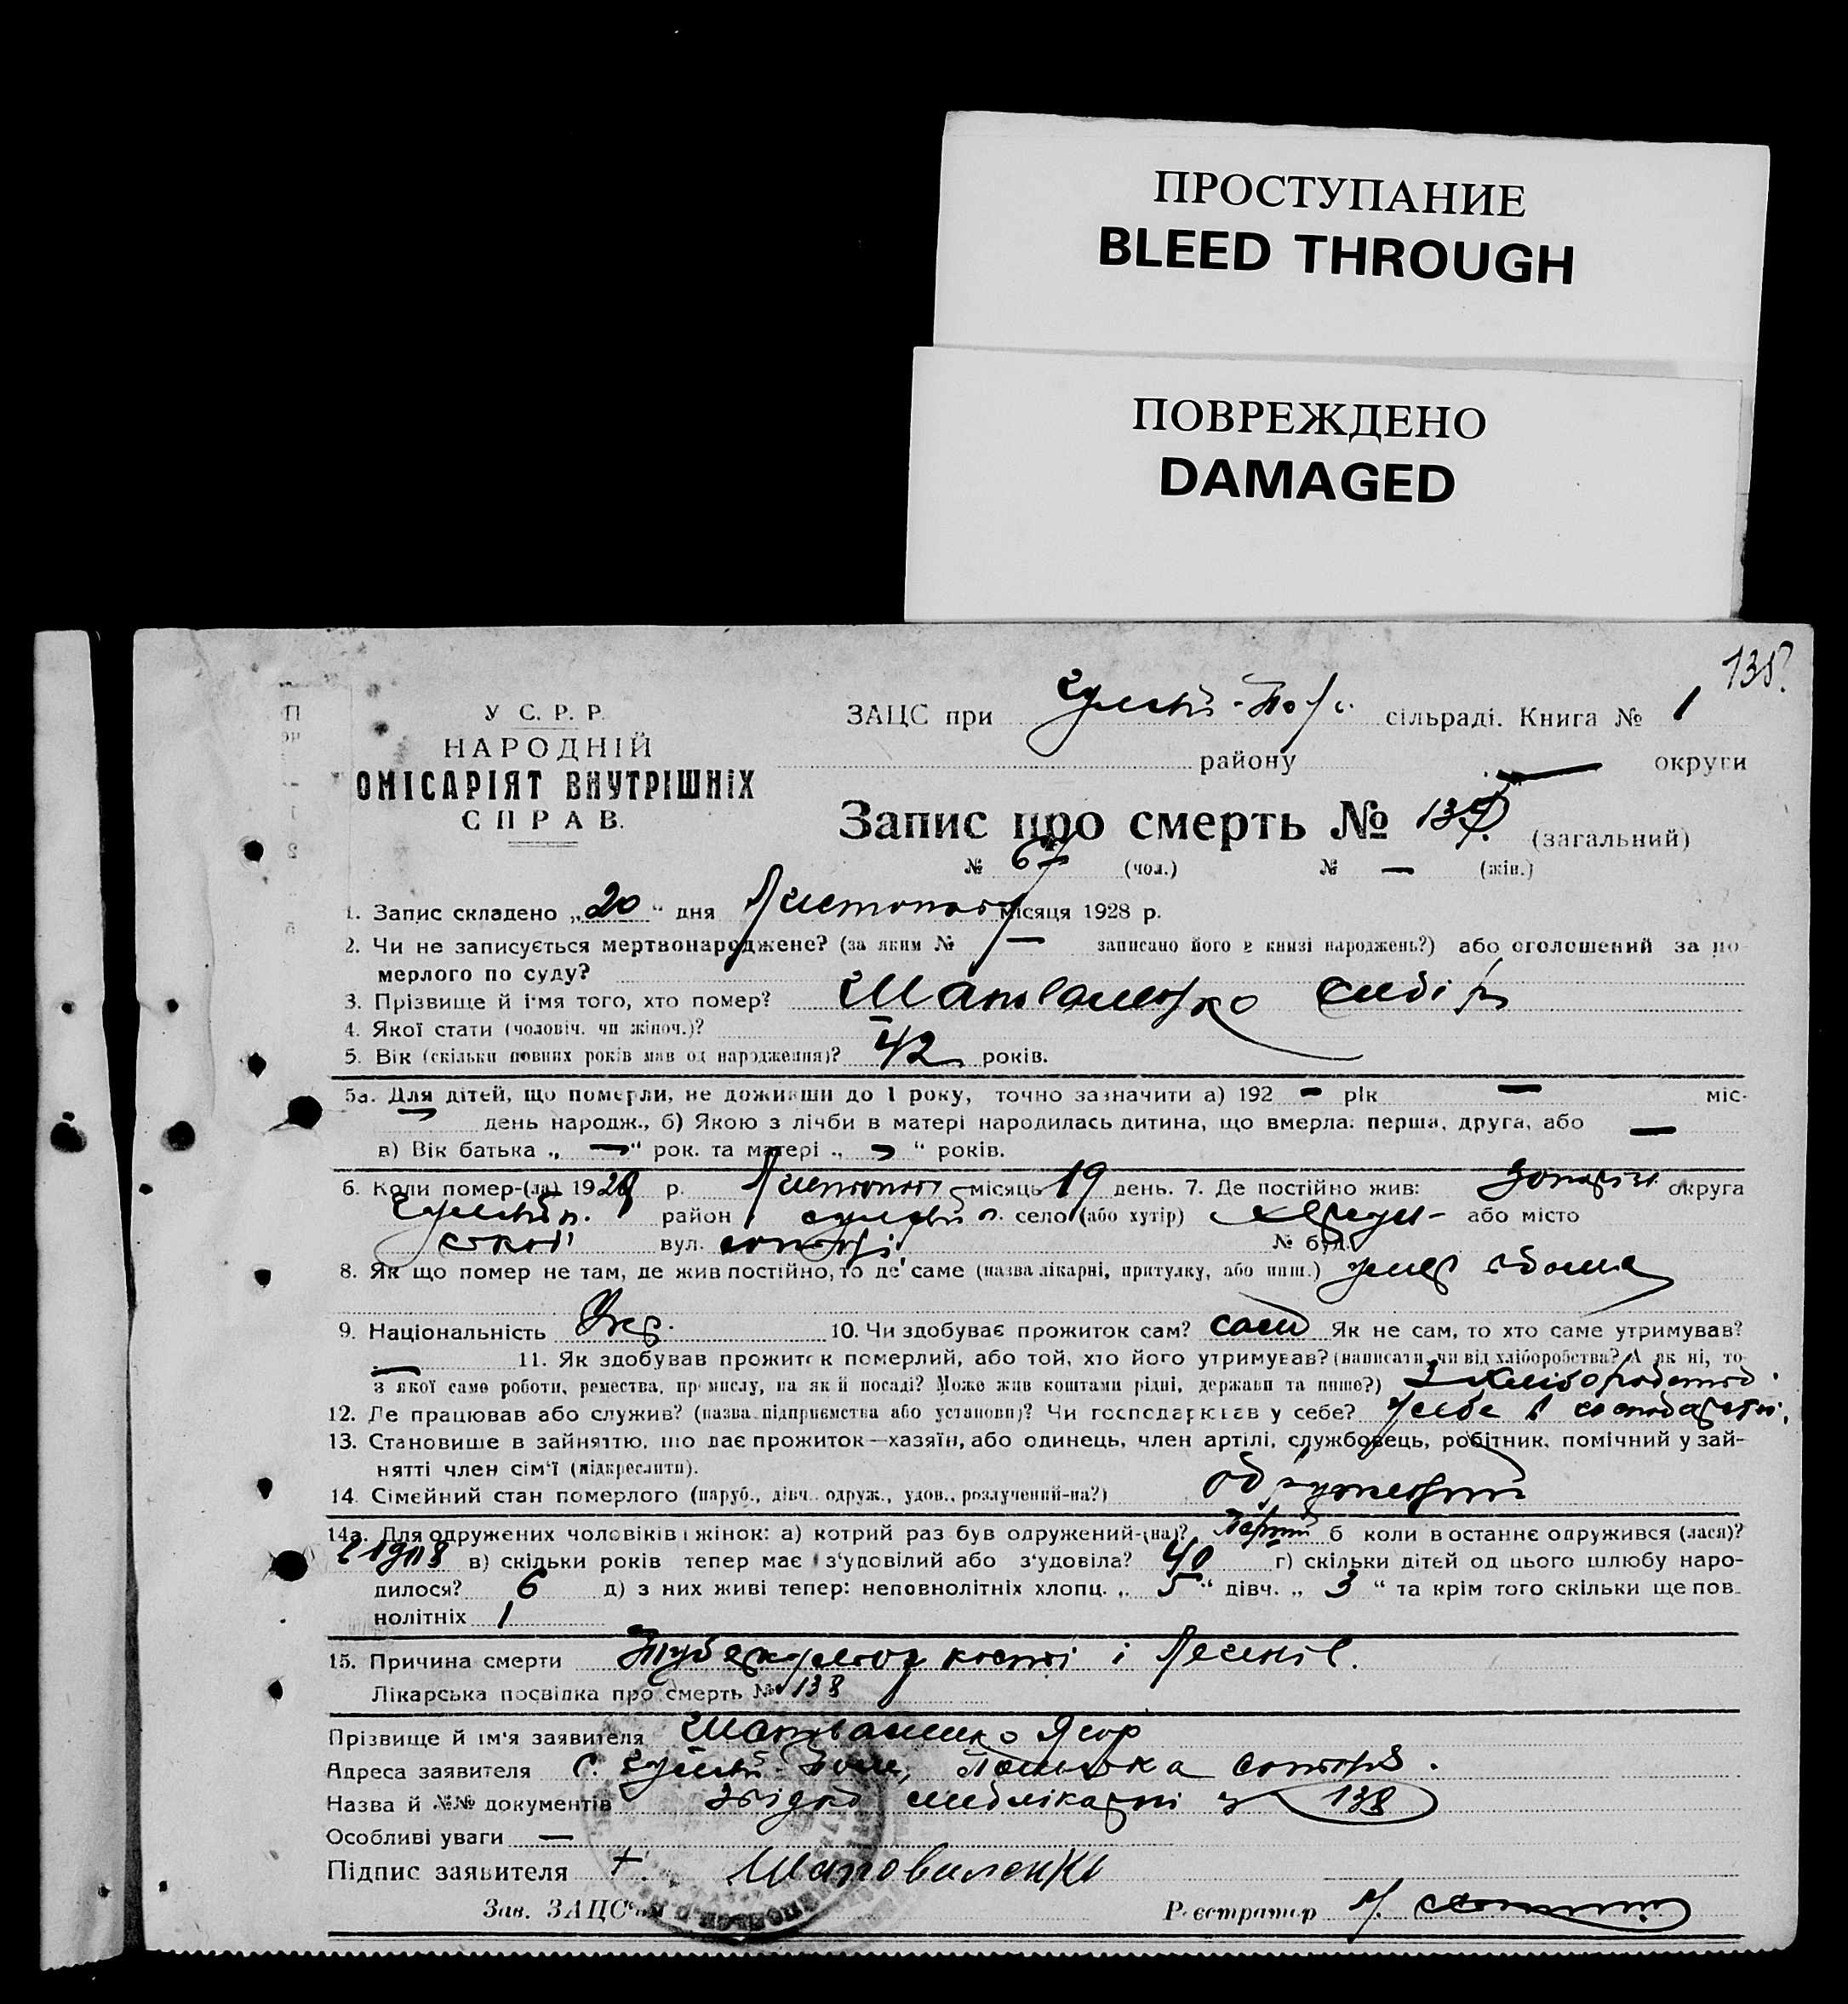 ПРОСТУПАНИЕ
BLEED THROUGH
ПОВРЕЖДЕНО
DAMAGED
135
У С. Р. Р.
НАРОДНІЙ
ОМІСАРІЯТ ВНУТРІШНІХ
СПРАВ.
ЗАЦС при сільраді. Книга № 1
району округи
Запис про смерть № (загальний)
№ 67 (чол.) № — (жін.)
1. Запис складено „20“ дня Листопада місяця 1928 р.
2. Чи не записується мертвонароджене? (за яким № — записано його в книзі народжень?) або оголошений за по
мерлого по суду?
3. Прізвище й ім'я того, хто помер? Шаповаленко Сидір
4. Якої стати (чоловіч. чи жіноч.)? —
5. Вік (скільки повних років мав од народження)? 42 років.
5а. Для дітей, що померли, не доживши до 1 року, точно зазначити а) 192 — рік — міс-
— день народж., б) Якою з лічби в матері народилась дитина, що вмерла: перша, друга, або —
в) Вік батька „ — “ рок. та матері „ — “ років.
6. Коли помер-(ла) 1928 р. Листопада місяць 19 день. 7. Де постійно жив: округа
район село (або хутір) або місто
вул. № буд.
8. Як що помер не там, де жив постійно, то де саме (назва лікарні, притулку, або инш.) умер вдома
9. Національність Укр. 10. Чи здобуває прожиток сам? сам Як не сам, то хто саме утримував?
— 11. Як здобував прожиток померлий, або той, хто його утримував? (написати, чи від хліборобства? А як ні, то
з якої саме роботи, ремества, промислу, на якій посаді? Може жив коштами рідні, держави та инше?) З хліборобства.
12. Де працював або служив? (назва підприємства або установи)? Чи господарював у себе? У себе в господарстві.
13. Становище в зайняттю, що дає прожиток—хазяїн, або одинець, член артілі, службовець, робітник, помічний у зай-
нятті член сім'ї (підкреслити).
14. Сімейний стан померлого (паруб., дівч. одруж., удов., розлучений-на?) одружений
14а. Для одружених чоловіків і жінок: а) котрий раз був одружений-(на)? Перший б коли в останнє одружився (лася)?
в) скільки років тепер має з'удовілий або з'удовіла? 40 г) скільки дітей од цього шлюбу наро-
дилося? 6 д) з них живі тепер: неповнолітніх хлопц. „ 5 “ дівч. „ 3 “ та крім того скільки ще пов-
нолітніх 1
15. Причина смерти Туберкульоз кості і легенів.
Лікарська посвідка про смерть № 138
Прізвище й ім'я заявителя Шаповаленко
Адреса заявителя С. Гуляй-Поле, сотня.
Назва й №№ документів 138
Особливі уваги —
Підпис заявителя + Шаповаленко
Зав. ЗАЦС'ом Реєстратор